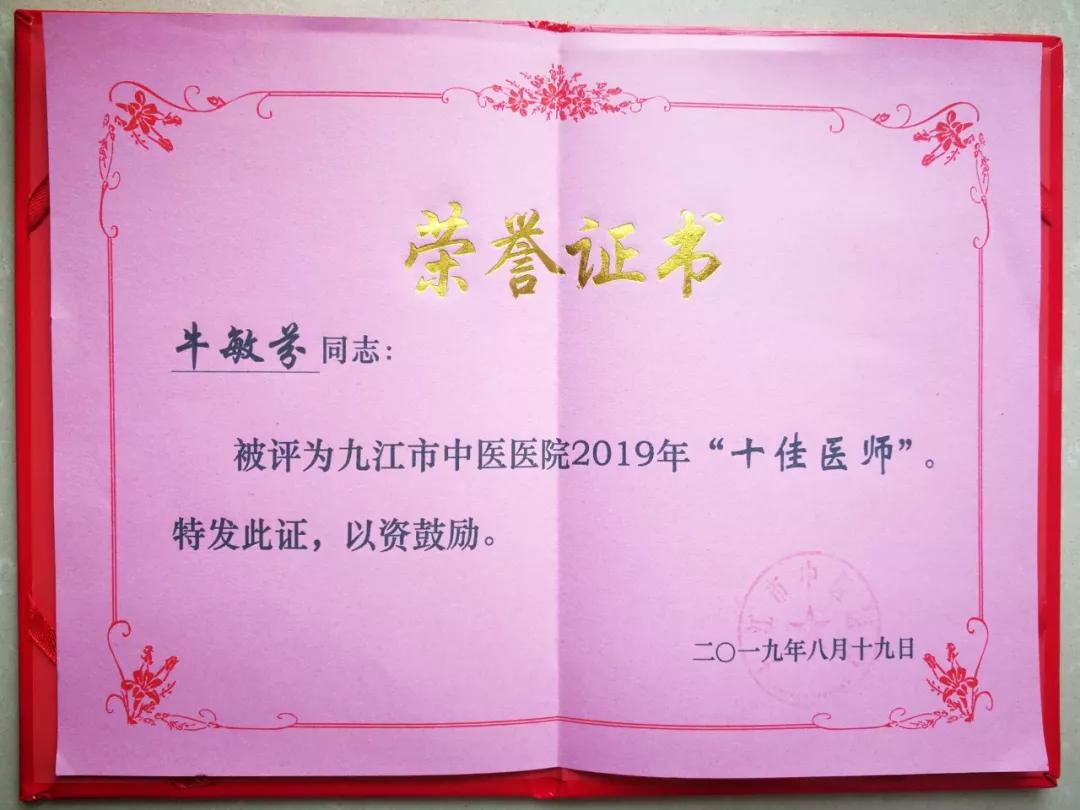 荣誉证书
牛敏芬同志：
被评为九江市中医医院2019年“十佳医师”。
特发此证，以资鼓励。
二〇一九年八月十九日
江市中